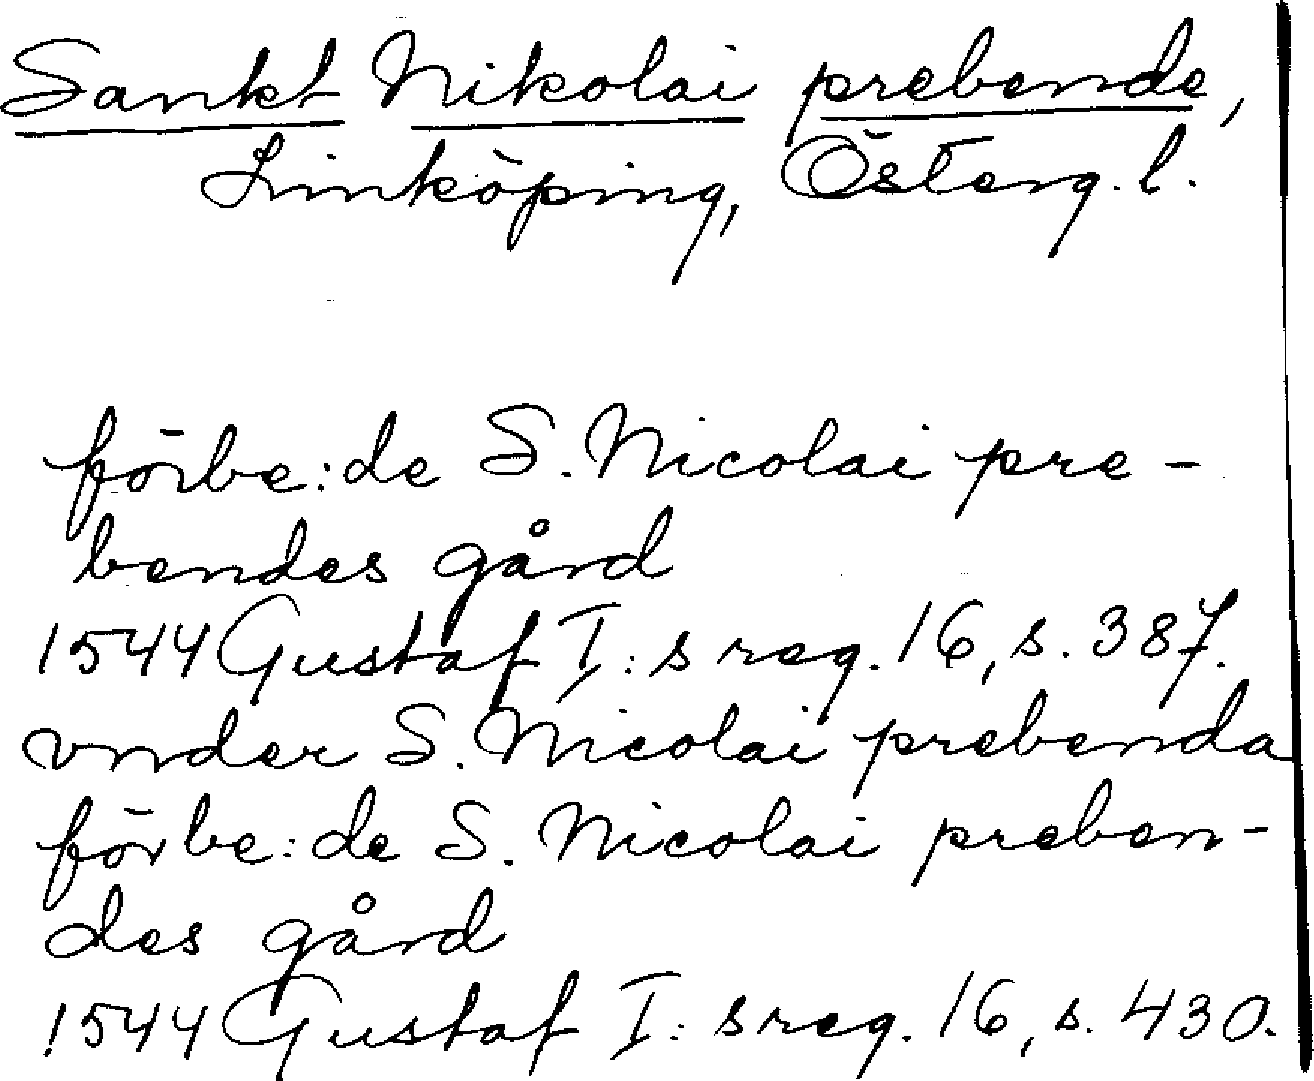 Sankt Nikolai prebende,
Linköping, Österg. l.
förbe:de S. Nicolai pre-
bendes gård
1544 Gustaf I:s reg. 16, s. 387.
vnder S. Nicolai prebenda
förbe:de S. Nicolai preben-
des gård
1544 Gustaf I:s reg. 16, s. 430.